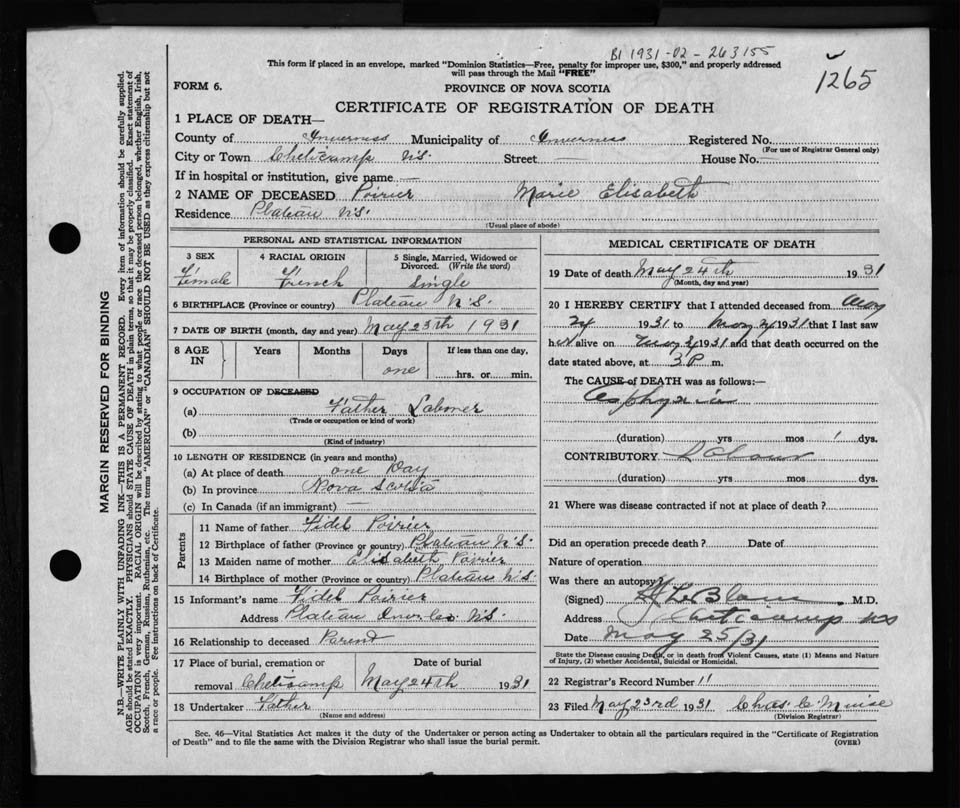 B1 1931-02-263155
1265
This form if placed in an envelope, marked "Dominion Statistics—Free, penalty for improper use, $300," and properly addressed
will pass through the Mail "FREE"
FORM 6.
PROVINCE OF NOVA SCOTIA
CERTIFICATE OF REGISTRATION OF DEATH
1 PLACE OF DEATH—
County of Inverness Municipality of Inverness Registered No.
(For use of Registrar General only)
City or Town Cheticamp N.S. Street — House No. —
If in hospital or institution, give name —
2 NAME OF DECEASED Poirier Marie Elisabeth
Residence Plateau N.S.
(Usual place of abode)
PERSONAL AND STATISTICAL INFORMATION
3 SEX 4 RACIAL ORIGIN 5 Single, Married, Widowed or
Divorced. (Write the word)
Female French Single
6 BIRTHPLACE (Province or country) Plateau N.S.
7 DATE OF BIRTH (month, day and year) May 23th 1931
8 AGE IN Years Months Days If less than one day,
one hrs. or min.
9 OCCUPATION OF DECEASED
(a) Father Laborer
(Trade or occupation or kind of work)
(b)
(Kind of industry)
10 LENGTH OF RESIDENCE (in years and months)
(a) At place of death one Day
(b) In province Nova Scotia
(c) In Canada (if an immigrant)
Parents
11 Name of father Fidel Poirier
12 Birthplace of father (Province or country) Plateau N.S.
13 Maiden name of mother Elisabeth Poirier
14 Birthplace of mother (Province or country) Plateau N.S.
15 Informant's name Fidel Poirier
Address Plateau N.S.
16 Relationship to deceased Parent
17 Place of burial, cremation or Date of burial
removal Cheticamp May 24th 1931
18 Undertaker Father
(Name and address)
MEDICAL CERTIFICATE OF DEATH
19 Date of death May 24th 1931
(Month, day and year)
20 I HEREBY CERTIFY that I attended deceased from May
24 1931 to May 24 1931 that I last saw
h er alive on May 24 1931 and that death occurred on the
date stated above, at 3 P. m.
The CAUSE of DEATH was as follows:—
Asphyxia
(duration) yrs mos 1 dys.
CONTRIBUTORY Labour
(duration) yrs mos dys.
21 Where was disease contracted if not at place of death?
Did an operation precede death? Date of
Nature of operation
Was there an autopsy?
(Signed) LeBlanc M.D.
Address Cheticamp NS
Date May 25/31
State the Disease causing Death, or in death from Violent Causes, state (1) Means and Nature
of Injury, (2) whether Accidental, Suicidal or Homicidal.
22 Registrar's Record Number 11
23 Filed May 23rd 1931 Chas C Muise
(Division Registrar)
Sec. 46—Vital Statistics Act makes it the duty of the Undertaker or person acting as Undertaker to obtain all the particulars required in the "Certificate of Registration
of Death" and to file the same with the Division Registrar who shall issue the burial permit.
(OVER)
MARGIN RESERVED FOR BINDING
N.B.—WRITE PLAINLY WITH UNFADING INK—THIS IS A PERMANENT RECORD. Every item of information should be carefully supplied.
AGE should be stated EXACTLY. PHYSICIANS should STATE CAUSE OF DEATH in plain terms, so that it may be properly classified. Exact statement of
OCCUPATION is very important. RACIAL ORIGIN will be described by stating to what people or race the deceased person belonged, whether English, Irish,
Scotch, French, German, Russian, Ruthenian, etc. The terms "AMERICAN" or "CANADIAN" SHOULD NOT BE USED as they express citizenship but not
a race or people. Fee instructions on back of Certificate.